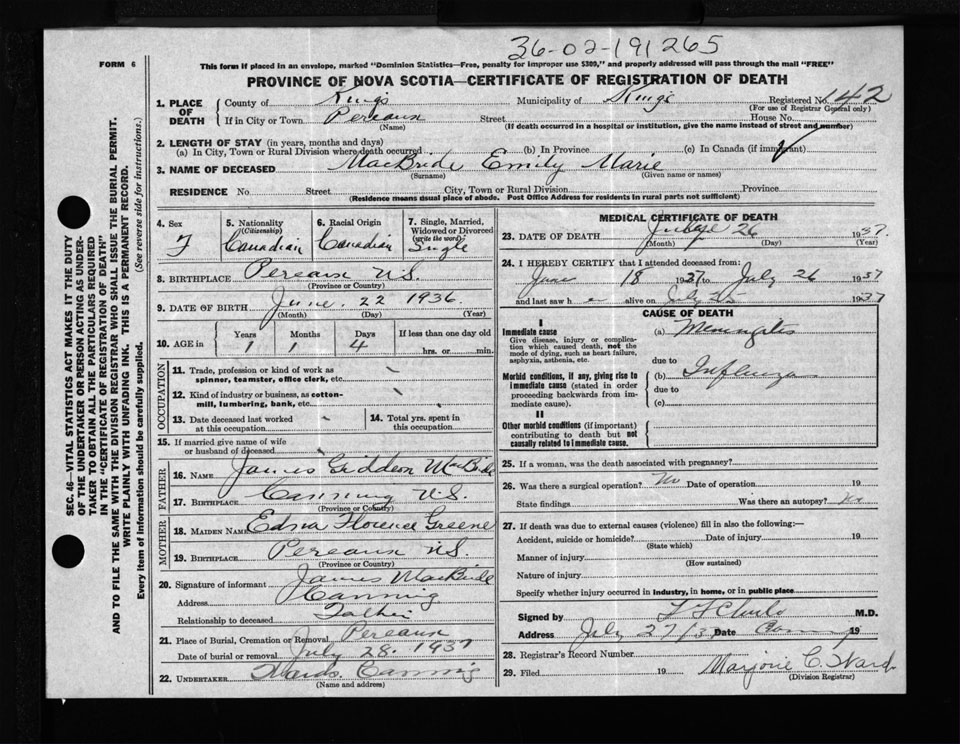 36-02-191265
FORM 6
This form if placed in an envelope, marked "Dominion Statistics—Free, penalty for improper use $300," and properly addressed will pass through the mail "FREE"
PROVINCE OF NOVA SCOTIA—CERTIFICATE OF REGISTRATION OF DEATH
1. PLACE OF DEATH
County of Kings Municipality of Kings Registered No. 142
(For use of Registrar General only)
If in City or Town Pereaux Street House No.
(Name) (If death occurred in a hospital or institution, give the name instead of street and number)
2. LENGTH OF STAY (in years, months and days)
(a) In City, Town or Rural Division where death occurred (b) In Province (c) In Canada (if immigrant)
3. NAME OF DECEASED MacBride Emily Marie
(Surname) (Given name or names)
RESIDENCE No Street City, Town or Rural Division Province
(Residence means usual place of abode. Post Office Address for residents in rural parts not sufficient)
4. Sex F
5. Nationality (Citizenship) Canadian
6. Racial Origin Canadian
7. Single, Married, Widowed or Divorced (write the word) Single
8. BIRTHPLACE Pereaux N.S.
(Province or Country)
9. DATE OF BIRTH June 22 1936
(Month) (Day) (Year)
10. AGE in Years 1 Months 1 Days 4 If less than one day old
hrs. or min.
OCCUPATION
11. Trade, profession or kind of work as spinner, teamster, office clerk, etc.
12. Kind of industry or business, as cotton-mill, lumbering, bank, etc.
13. Date deceased last worked at this occupation
14. Total yrs. spent in this occupation
15. If married give name of wife or husband of deceased
FATHER
16. NAME James Griddeon MacBride
17. BIRTHPLACE Canning N.S.
(Province or Country)
MOTHER
18. MAIDEN NAME Edna Florence Greene
19. BIRTHPLACE Pereaux N.S.
(Province or Country)
20. Signature of informant James MacBride
Address Canning
Relationship to deceased Father
21. Place of Burial, Cremation or Removal Pereaux
Date of burial or removal July 28. 1937
22. UNDERTAKER Wards. Canning
(Name and address)
MEDICAL CERTIFICATE OF DEATH
23. DATE OF DEATH July 26 1937.
(Month) (Day) (Year)
24. I HEREBY CERTIFY that I attended deceased from:
June 18 1937 to July 26 1937
and last saw h er alive on July 25 1937
CAUSE OF DEATH
I
Immediate cause
Give disease, injury or complication which caused death, not the mode of dying, such as heart failure, asphyxia, asthenia, etc.
(a) Meningitis
due to
Morbid conditions, if any, giving rise to immediate cause (stated in order proceeding backwards from immediate cause).
(b) Influenza
due to
(c)
II
Other morbid conditions (if important) contributing to death but not causally related to immediate cause.
25. If a woman, was the death associated with pregnancy?
26. Was there a surgical operation? No Date of operation 19
State findings Was there an autopsy? No
27. If death was due to external causes (violence) fill in also the following:—
Accident, suicide or homicide? Date of injury 19
(State which)
Manner of injury
(How sustained)
Nature of injury
Specify whether injury occurred in industry, in home, or in public place
Signed by M.D.
Address July 27/37 Date 19
28. Registrar's Record Number
29. Filed 19 Marjorie C. Ward
(Division Registrar)
SEC. 46—VITAL STATISTICS ACT MAKES IT THE DUTY
OF THE UNDERTAKER OR PERSON ACTING AS UNDERTAKER TO OBTAIN ALL THE PARTICULARS REQUIRED
IN THE "CERTIFICATE OF REGISTRATION OF DEATH"
AND TO FILE THE SAME WITH THE DIVISION REGISTRAR WHO SHALL ISSUE THE BURIAL PERMIT.
WRITE PLAINLY WITH UNFADING INK. THIS IS A PERMANENT RECORD.
Every item of information should be carefully supplied. (See reverse side for instructions.)